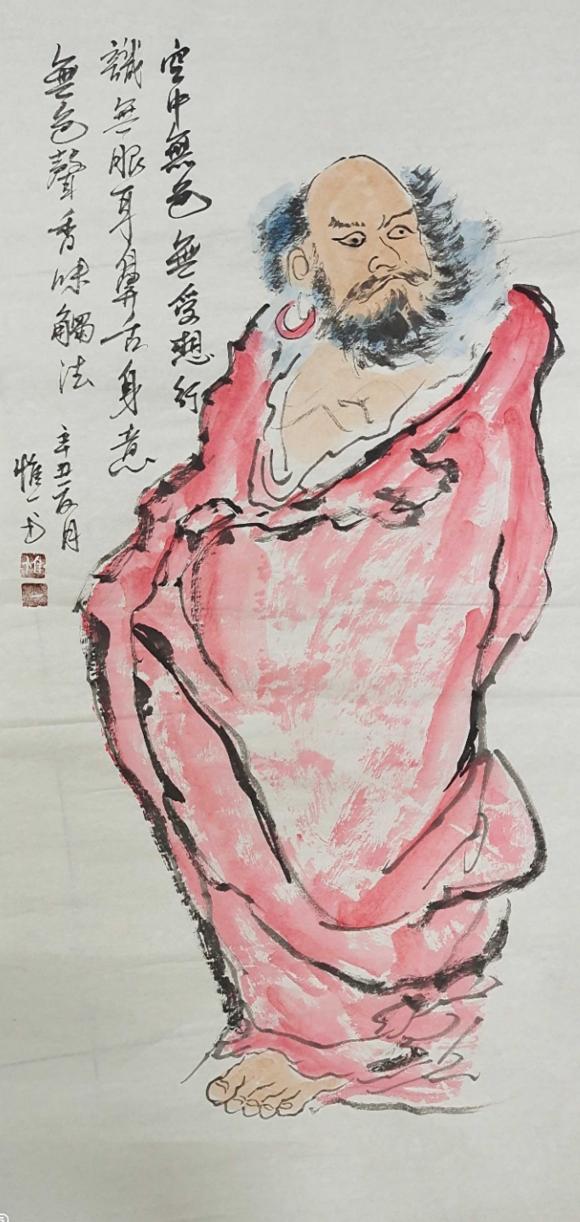 空中無色無受想行
識無眼耳鼻舌身意
無色聲香味觸法
辛丑六月
惟一書